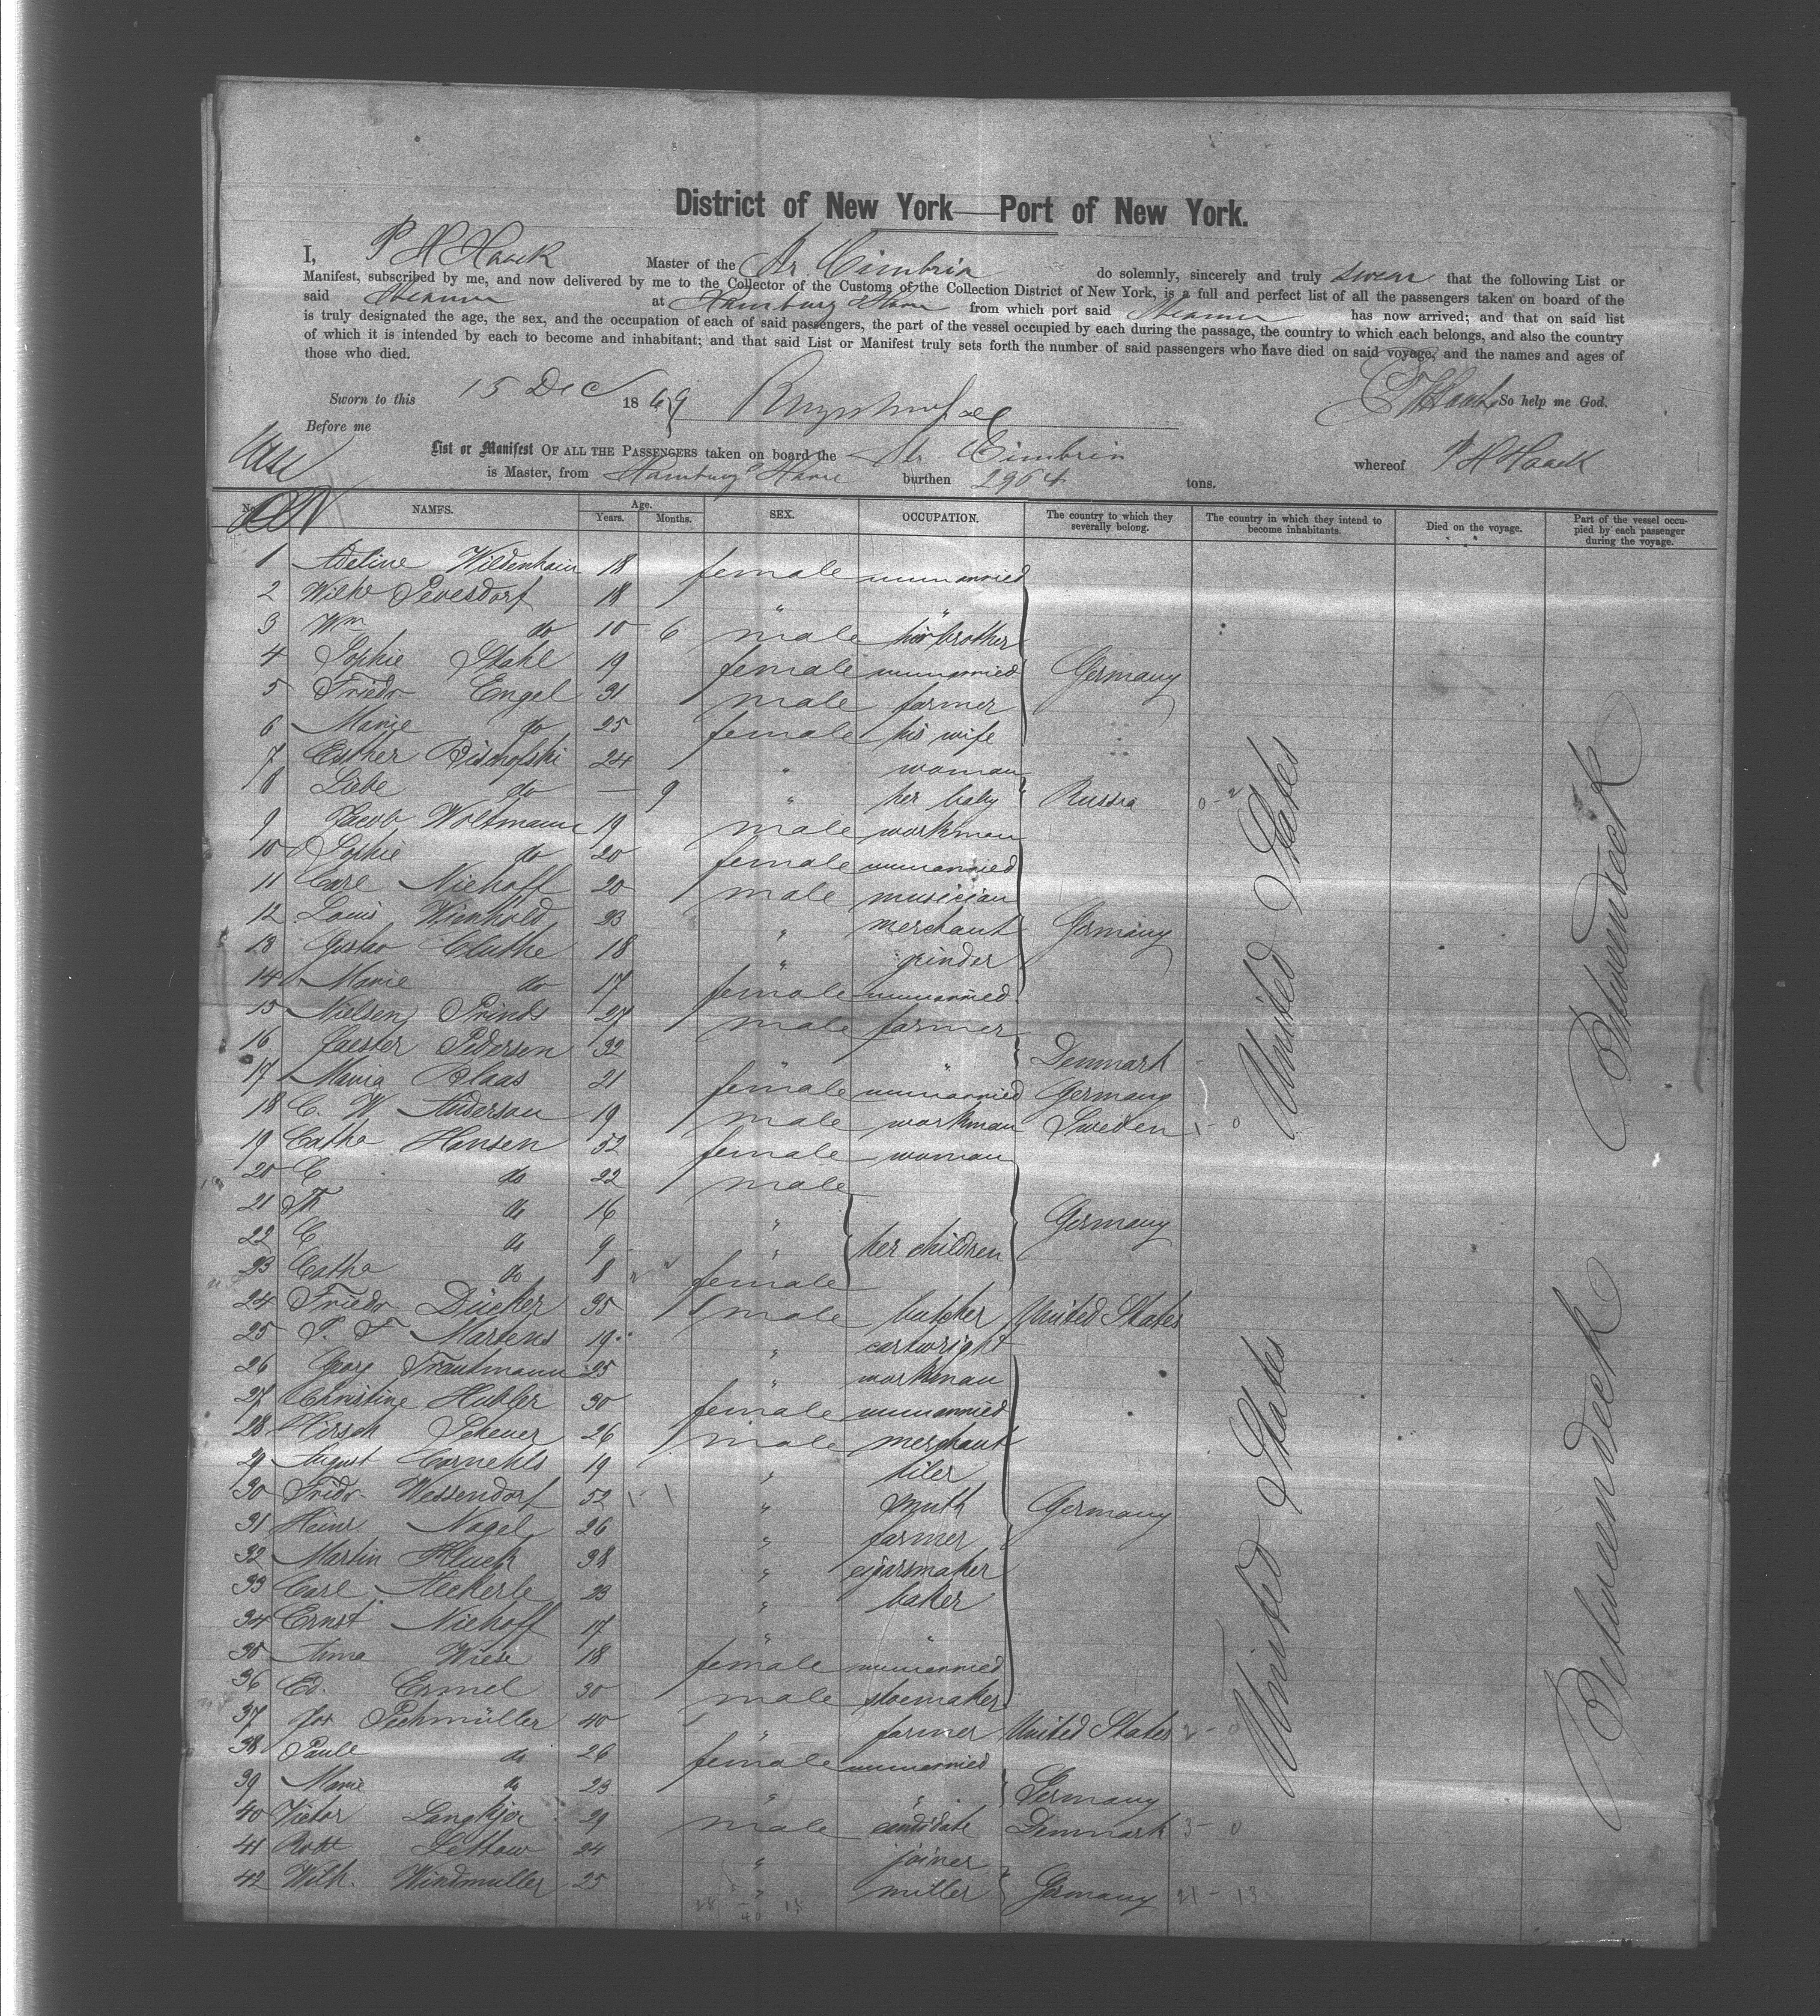 District of New York—Port of New York.
I, P H Haack Master of the Str. Cimbria do solemnly, sincerely and truly swear that the following List or
Manifest, subscribed by me, and now delivered by me to the Collector of the Customs of the Collection District of New York, is a full and perfect list of all the passengers taken on board of the
said Steamer at Hamburg Havre from which port said Steamer has now arrived; and that on said list
is truly designated the age, the sex, and the occupation of each of said passengers, the part of the vessel occupied by each during the passage, the country to which each belongs, and also the country
of which it is intended by each to become and inhabitant; and that said List or Manifest truly sets forth the number of said passengers who have died on said voyage, and the names and ages of
those who died.
Sworn to this 15 Dec 1869 Haack So help me God.
Before me
List or Manifest OF ALL THE PASSENGERS taken on board the Str Cimbria whereof P H Haack
is Master, from Hamburg Havre burthen 2964 tons.
No. NAMES. Age. Years. Months. SEX. OCCUPATION. The country to which they severally belong. The country in which they intend to become inhabitants. Died on the voyage. Part of the vessel occupied by each passenger during the voyage.
1 Adeline Wildenhain 18 female unmarried
2 Wilhe Sevesdorf 18 " "
3 Wm do 10 6 male her brother
4 Sophie Stahl 19 female unmarried Germany
5 Friedr Engel 31 male farmer
6 Marie do 25 female his wife
7 Esther Bischofski 24 " woman
8 Liebe do — 9 " her baby Russia
9 Jacob Woltmann 19 male workman
10 Sophie do 20 female unmarried
11 Carl Niehoff 20 male musician
12 Louis Wienhold 23 " merchant Germany
13 Gustav Cluthe 18 " grinder
14 Marie do 17 female unmarried
15 Nielsen Prinds 27 male farmer
16 Pedersen 32 " " Denmark
17 Maria Claas 21 female unmarried Germany
18 C. W Anderson 19 male workman Sweden
19 Catha Hansen 52 female woman
20 C do 22 male
21 Th do 16 " Germany
22 C do 9 " her children
23 Catha do 8 female
24 Friedr Dücker 35 male butcher United States
25 P. F Martens 19 " cartwright
26 Georg Trautmann 25 " workman
27 Christine Hubler 30 female unmarried
28 Hirsch Scheuer 26 male merchant
29 August Cornehls 19 " tiler
30 Friedr Wessendorf 52 " smith Germany
31 Heinr Nagel 26 " farmer
32 Martin Kluck 38 " cigarsmaker
33 Carl Heckerle 23 " baker
34 Ernst Niehoff 17 " "
35 Anna Wiese 18 female unmarried
36 Ed. Ermel 30 male shoemaker
37 Jos Pechmüller 40 " farmer United States
38 Paule do 26 female unmarried
39 Marie do 23 " " Germany
40 Victor Langkjer 29 male candidate Denmark
41 Robt Lettow 24 " joiner
42 Wilh. Windmuller 25 " miller Germany
United States
United States
Betweendeck
Betweendeck